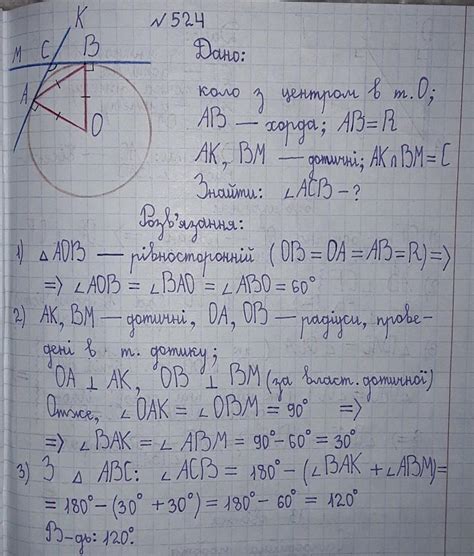 N 524
K
M C B
A
O
Дано:
коло з центром в т. O;
AB — хорда; AB = R
AK, BM — дотичні; AK ∩ BM = C
Знайти: ∠ACB - ?
Розв'язання:
1) △ AOB — рівносторонній (OB = OA = AB = R) =>
=> ∠AOB = ∠BAO = ∠ABO = 60°
2) AK, BM — дотичні, OA, OB — радіуси, прове-
дені в т. дотику;
OA ⊥ AK, OB ⊥ BM (за власт. дотичної)
Отже, ∠OAK = ∠OBM = 90° =>
=> ∠BAK = ∠ABM = 90° - 60° = 30°
3) З △ ABC: ∠ACB = 180° - (∠BAK + ∠ABM) =
= 180° - (30° + 30°) = 180° - 60° = 120°
В-дь: 120°.